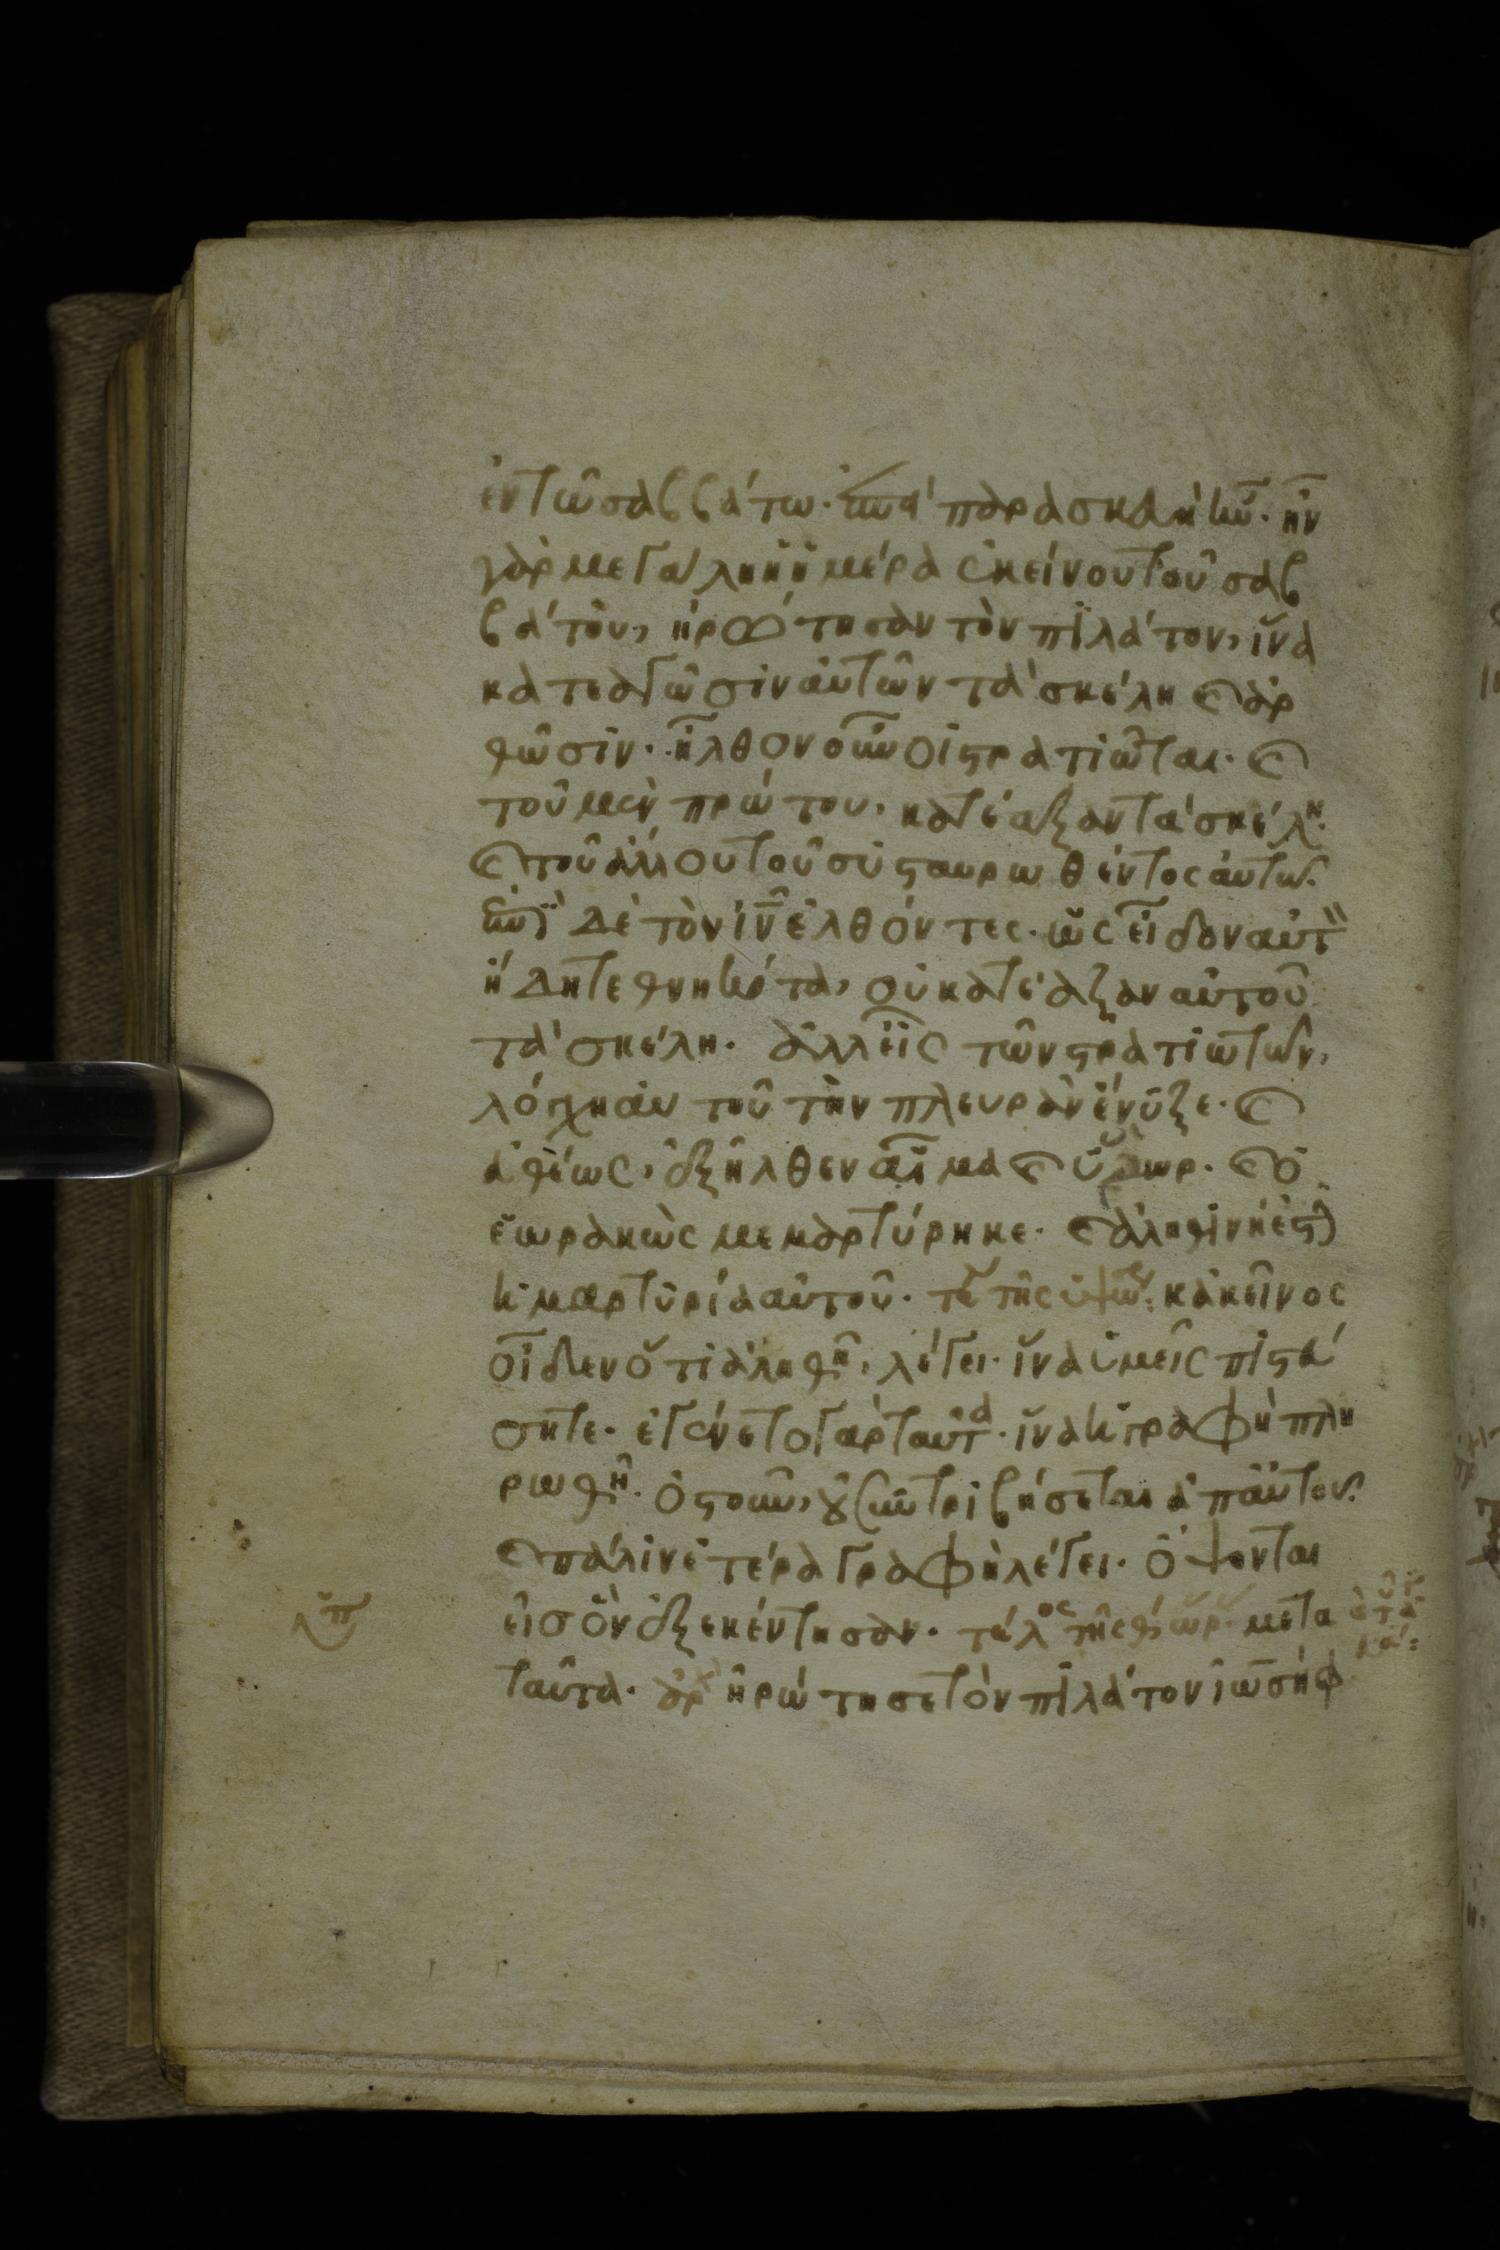 ἐν τῶ σαββάτω· ἐπεὶ παρασκευὴ ἦν· ἦν
γὰρ μεγάλη ἡ ἡμέρα ἐκείνου τοῦ σαβ
βάτου, ἠρώτησαν τὸν πιλάτον, ἵνα
κατεαγῶσιν αὐτῶν τὰ σκέλη καὶ ἀρ
θῶσιν· ἦλθον οὖν οἱ στρατιῶται· καὶ
τοῦ μὲν πρώτου, κατέαξαν τὰ σκέλη·
καὶ τοῦ ἄλλου τοῦ συσταυρωθέντος αὐτῶ·
ἐπὶ δὲ τὸν ἰν ἐλθόντες· ὡς εἶδον αὐτὸν
ἤδη τεθνηκότα, οὐ κατέαξαν αὐτοῦ
τὰ σκέλη· ἀλλ εἷς τῶν στρατιωτῶν,
λόγχη αὐτοῦ τὴν πλευρὰν ἔνυξε· καὶ
εὐθέως, ἐξῆλθεν αἷμα καὶ ὕδωρ· καὶ ὁ
ἑωρακὼς μεμαρτύρηκε· καὶ ἀληθινή ἐστιν
ἡ μαρτυρία αὐτοῦ· τε τῆς ὑψώ: κἀκεῖνος
οἶδεν ὅτι ἀληθῆ, λέγει· ἵνα ὑμεῖς πιστεύ
σητε· ἐγένετο γὰρ ταῦτα· ἵνα ἡ γραφὴ πλη
ρωθῆ· ὀστοῦν, οὐ συντριβήσεται ἀπ αὐτοῦ·
καὶ πάλιν ἑτέρα γραφὴ λέγει· ὄψονται
εἰς ὃν ἐξεκέντησαν· τέλος τῆς θ ὥρ· μετα
ταῦτα· ἀρχ ἠρώτησε τὸν πιλάτον ἰωσὴφ